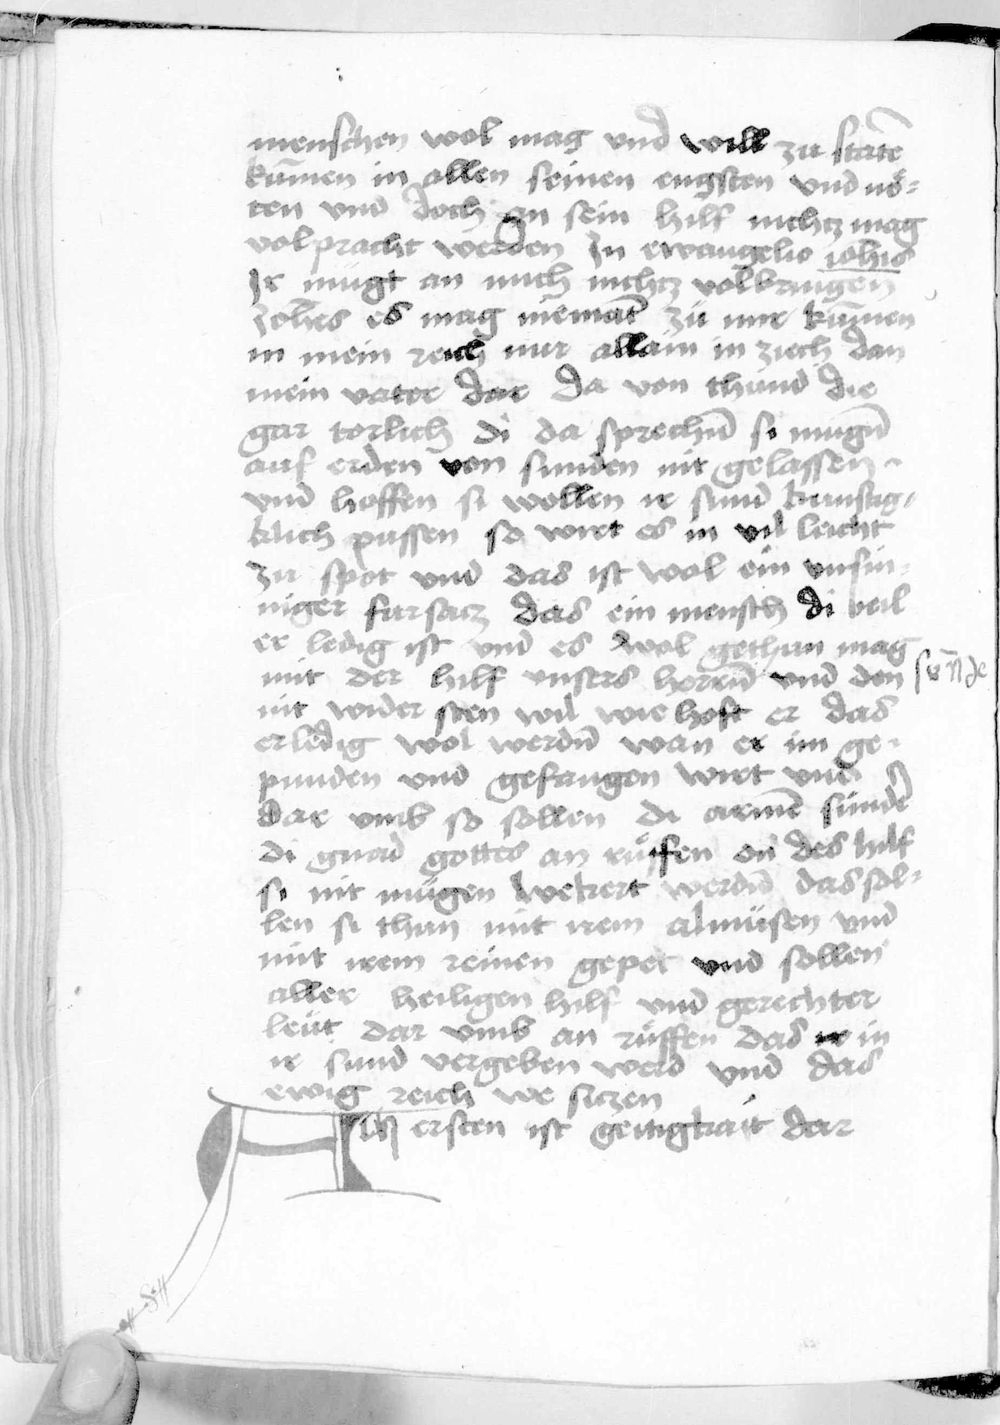 menschen wol mag vnd will zu statē
kūmen in allen seinen engsten vnd nö-
ten vnd doch an sein hilf nichtz mag
volpracht werden In ewangelio ioh̄is
Ir mügt an mich nichtz volbringen
Joh̄es es mag niemāt zü mir kūmen
in mein reich nur allain in ziech dan
mein vater dar da von thund die
gar torlich di da sprechn̄ si mugn̄
auf erden von sunden nit gelassen
vnd hoffen si wollen ir sund kunftig-
klich pussen so wirt es in vil leicht
zu spot vnd das ist wol ein vnsin-
niger fursacz das ein mensch di weil
er ledig ist vnd es wol gethun mag
mit der hilf vnsers herrn̄ vnd den sūnde
nit wider sten wil wie hoft er das
er ledig wol werdn̄ wan er im ge-
punden vnd gefangen wirt vnd
dar vmb so sollen di armē sünder
di gnad gottes an rüffen on des hilf
si nit mügen bekert werdn̄ das sol-
len si thun mit irem almüsen vnd
mit irem reinen gepet vnd sollen
aller heiligen hilf vnd gerechter
leüt dar vmb an rüffen das ir in
ir sund vergeben werd vnd das
ewig reich we siczen
Am ersten ist geitigkait dar